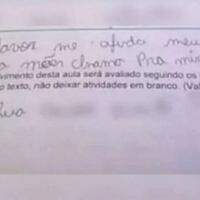 favor me ajuda meu
a mãer chamo Pra mim
vimento desta aula será avaliado seguindo os
o texto, não deixar atividades em branco. (Val